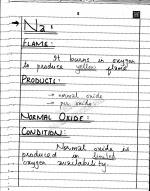 → Na:
FLAME:
It burns in oxygen
to produce yellow flame
PRODUCTS:
→ normal oxide
→ per oxide
NORMAL OXIDE:
CONDITION:
Normal oxide is
produced in limited
oxygen availability.